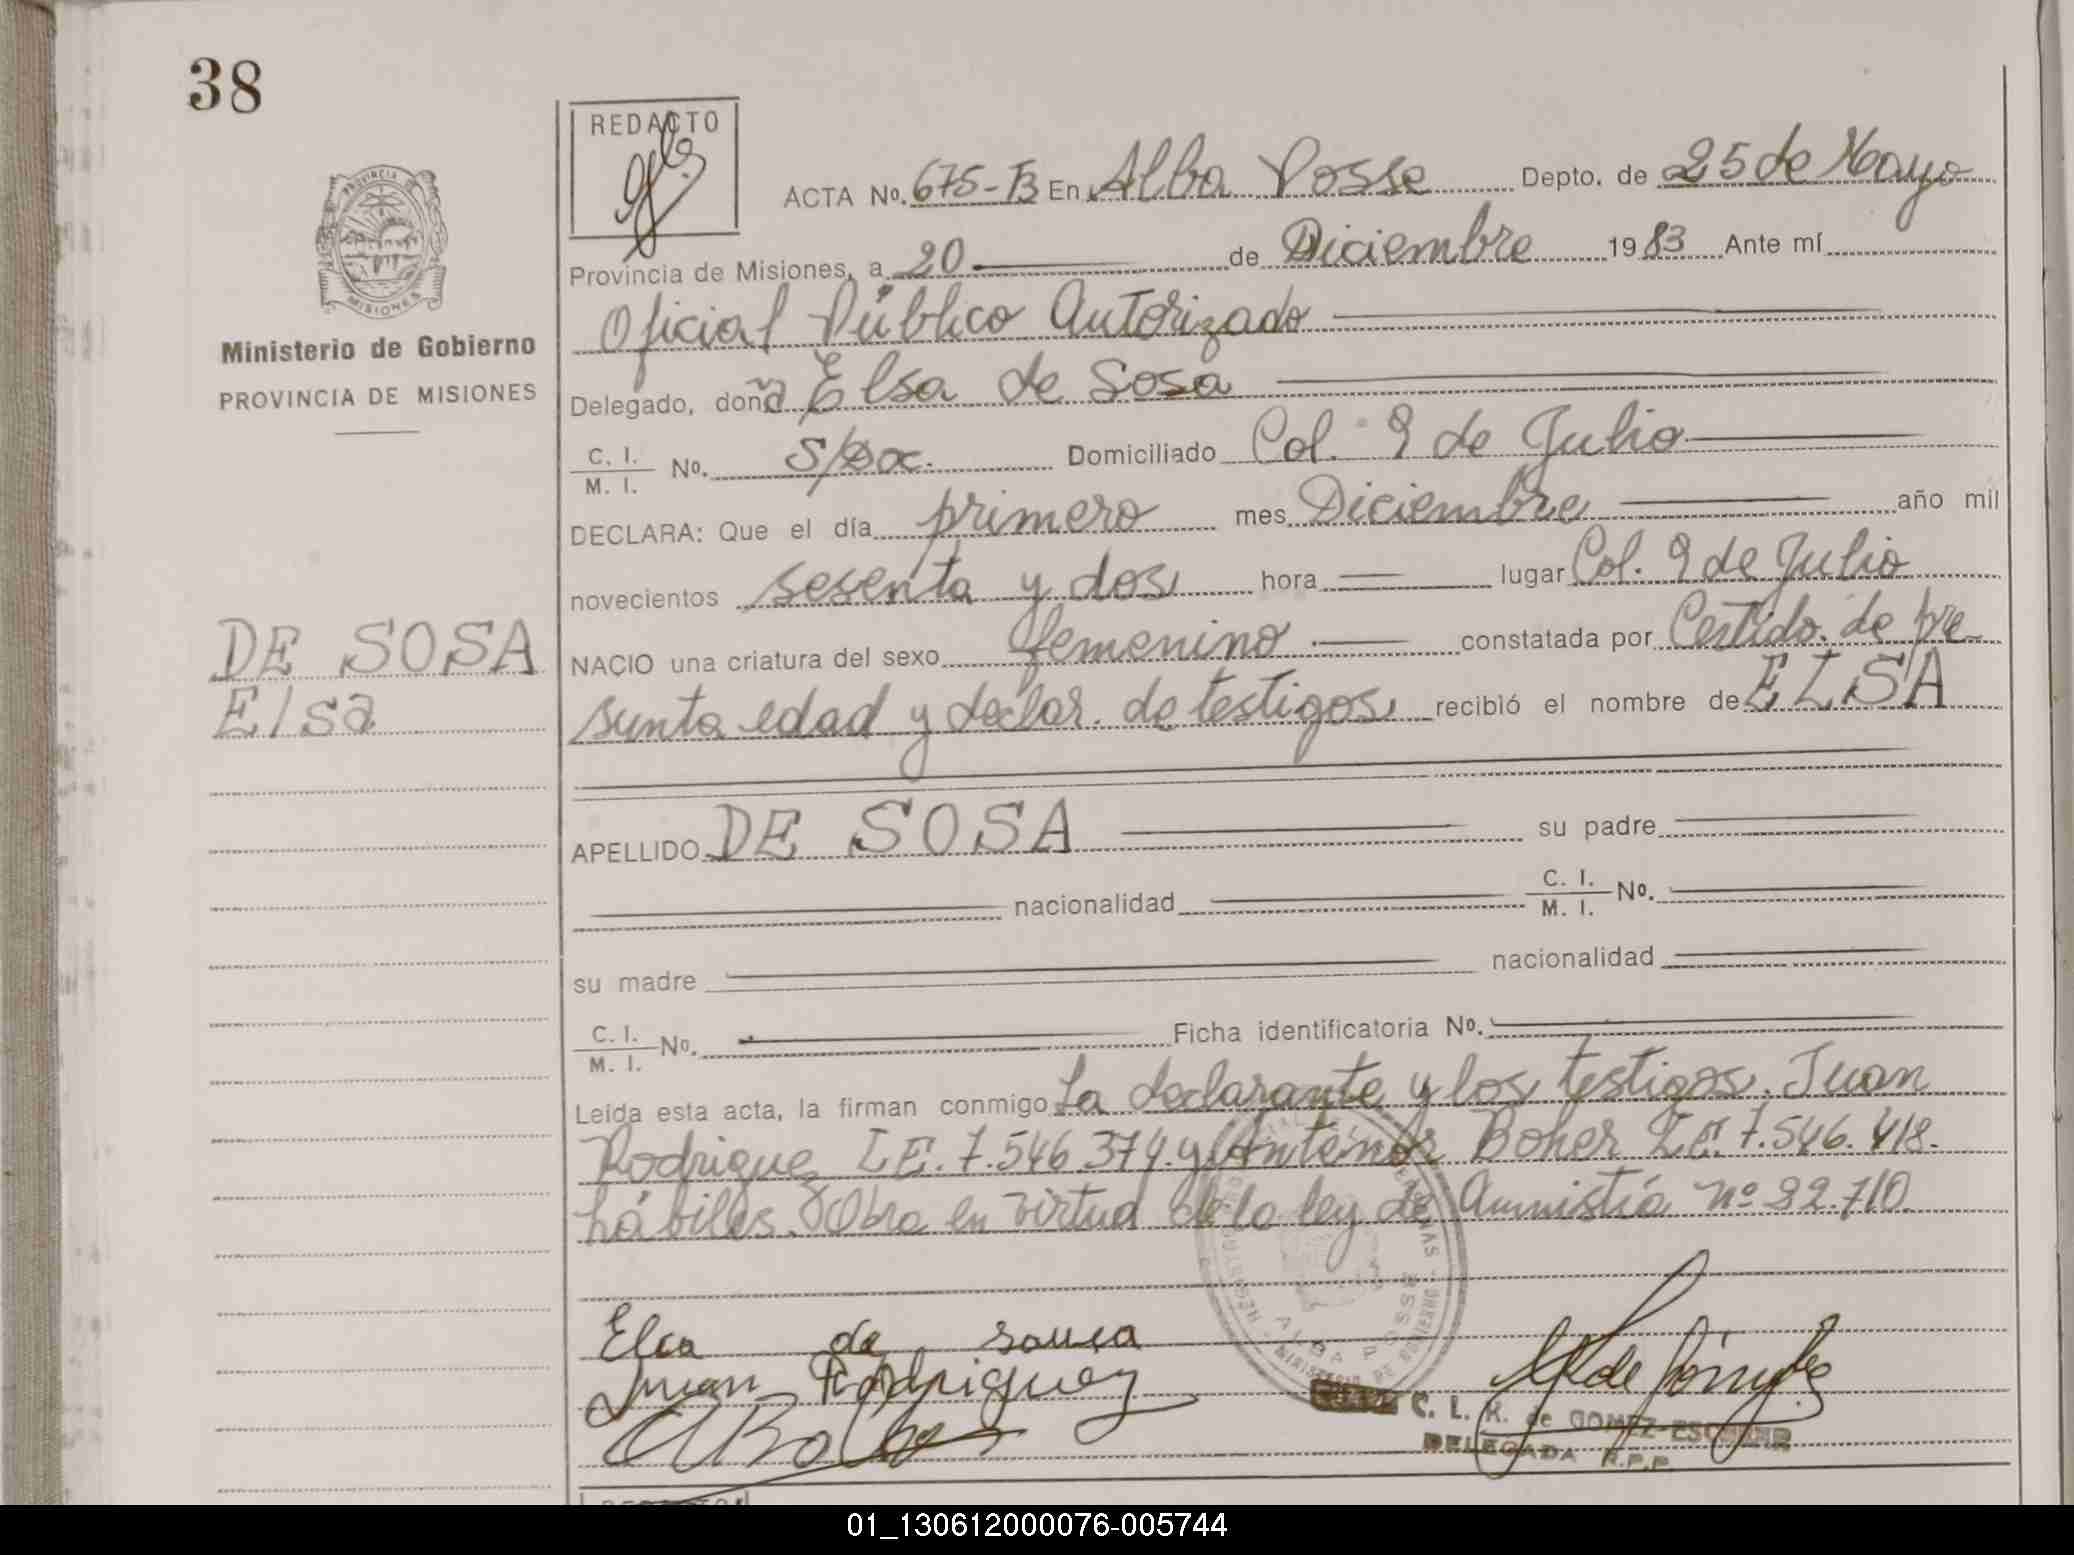 38
REDACTO
ACTA No. 675-B En Alba Posse Depto. de 25 de Mayo
Provincia de Misiones, a 20 de Diciembre 1983 Ante mí
Oficial Público Autorizado
Ministerio de Gobierno
PROVINCIA DE MISIONES
Delegado, doña Elsa de Sosa
C. I.
M. I. No. S/Doc. Domiciliado Col. 9 de Julio
DECLARA: Que el día primero mes Diciembre año mil
novecientos sesenta y dos hora lugar Col. 9 de Julio
DE SOSA
Elsa
NACIO una criatura del sexo femenino constatada por Certido. de pre-
sunta edad y declar. de testigos recibió el nombre de ELSA
APELLIDO DE SOSA su padre
nacionalidad C. I.
M. I. No.
su madre nacionalidad
C. I.
M. I. No. Ficha identificatoria No.
Leída esta acta, la firman conmigo La declarante y los testigos. Juan
Rodrigue L.E. 7.546.374. y Antenor Boher L.E. 7.546.418.
hábiles. Obra en virtud de la ley de Amnistía Nº 22.710.
Elca de souca
Juan Rodriguez
ALBA POSSE
C. L. K. de GOMEZ ESCOBAR
DELEGADA R.P.P.
01_130612000076-005744